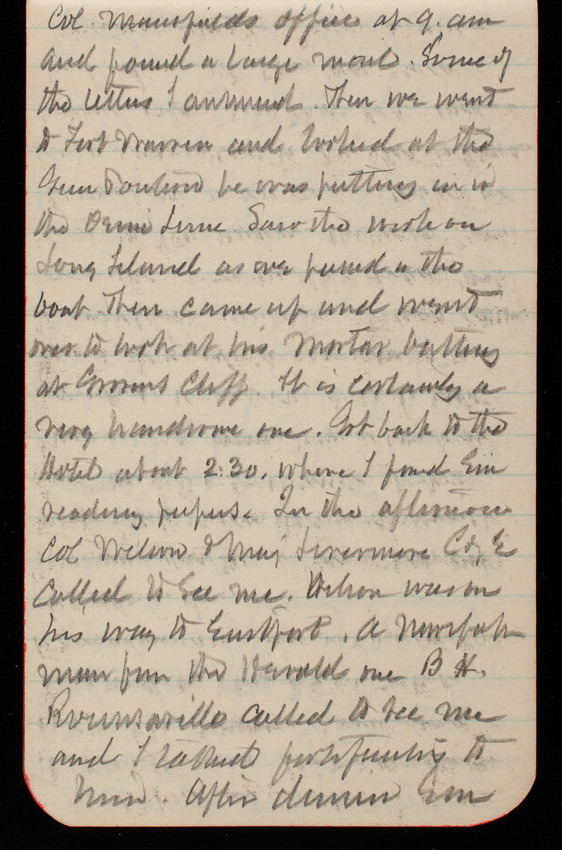 Col Mansfields office at 9. am
and found a large mail. Some of
the letters I answered. Then we went
to Fort Warren and looked at the
Gun Pontoon he was putting in in
the Demi Lune Saw the work on
Long Island as we passed in the
boat Then came up and went
over to look at his Mortar battery
at Grovers Cliff. It is certainly a
very handsome one. Got back to the
Hotel about 2:30. where I found Em
reading papers. In the afternoon
Col Wilson & Maj Livermore C of E
called to see me. Wilson was on
his way to Eastport. A Newspaper
man from the Herald one B H.
called to see me
and I talked fortifications to
him. After dinner Em